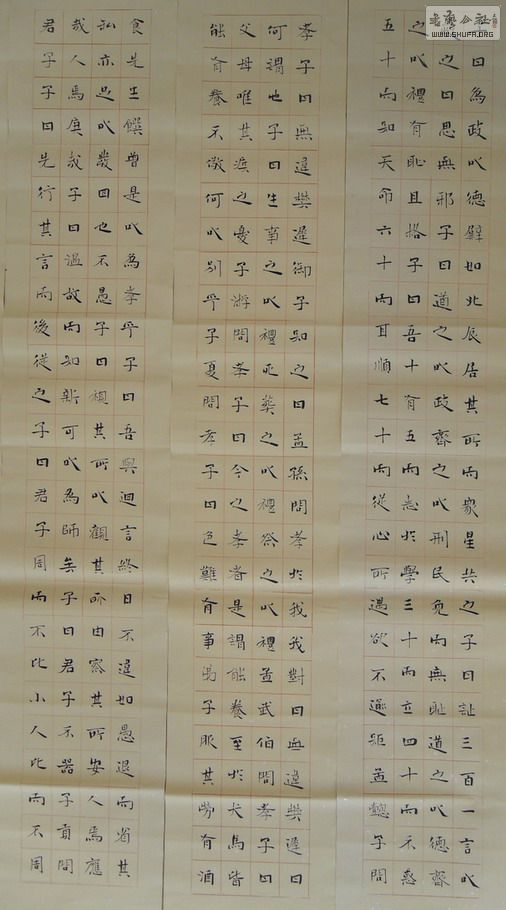 書藝公社
WWW.SHUFA.ORG
曰為政以德譬如北辰居其所而衆星共之子曰詩三百一言以
之曰思無邪子曰道之以政齊之以刑民免而無恥道之以德齊
之以禮有恥且格子曰吾十有五而志於學三十而立四十而不惑
五十而知天命六十而耳順七十而從心所過欲不逾距孟懿子問
孝子曰無違樊遲御子知之曰孟孫問孝於我我對曰無違樊遲曰
何謂也子曰生事之以禮死葬之以禮祭之以禮孟武伯問孝子曰
父母唯其疾之憂子游問孝子曰今之孝者是謂能養至於犬馬皆
能有養不敬何以别乎子夏問孝子曰色難有事弟子服其勞有酒
食先生饌曾是以為孝乎子曰吾與迴言終日不違如愚退而省其
私亦足以發曰也不愚子曰視其所以觀其所由察其所安人焉廋
哉人焉廋哉子曰溫故而知新可以為師矣子曰君子不器子貢問
君子子曰先行其言而後從之子曰君子周而不比小人比而不周